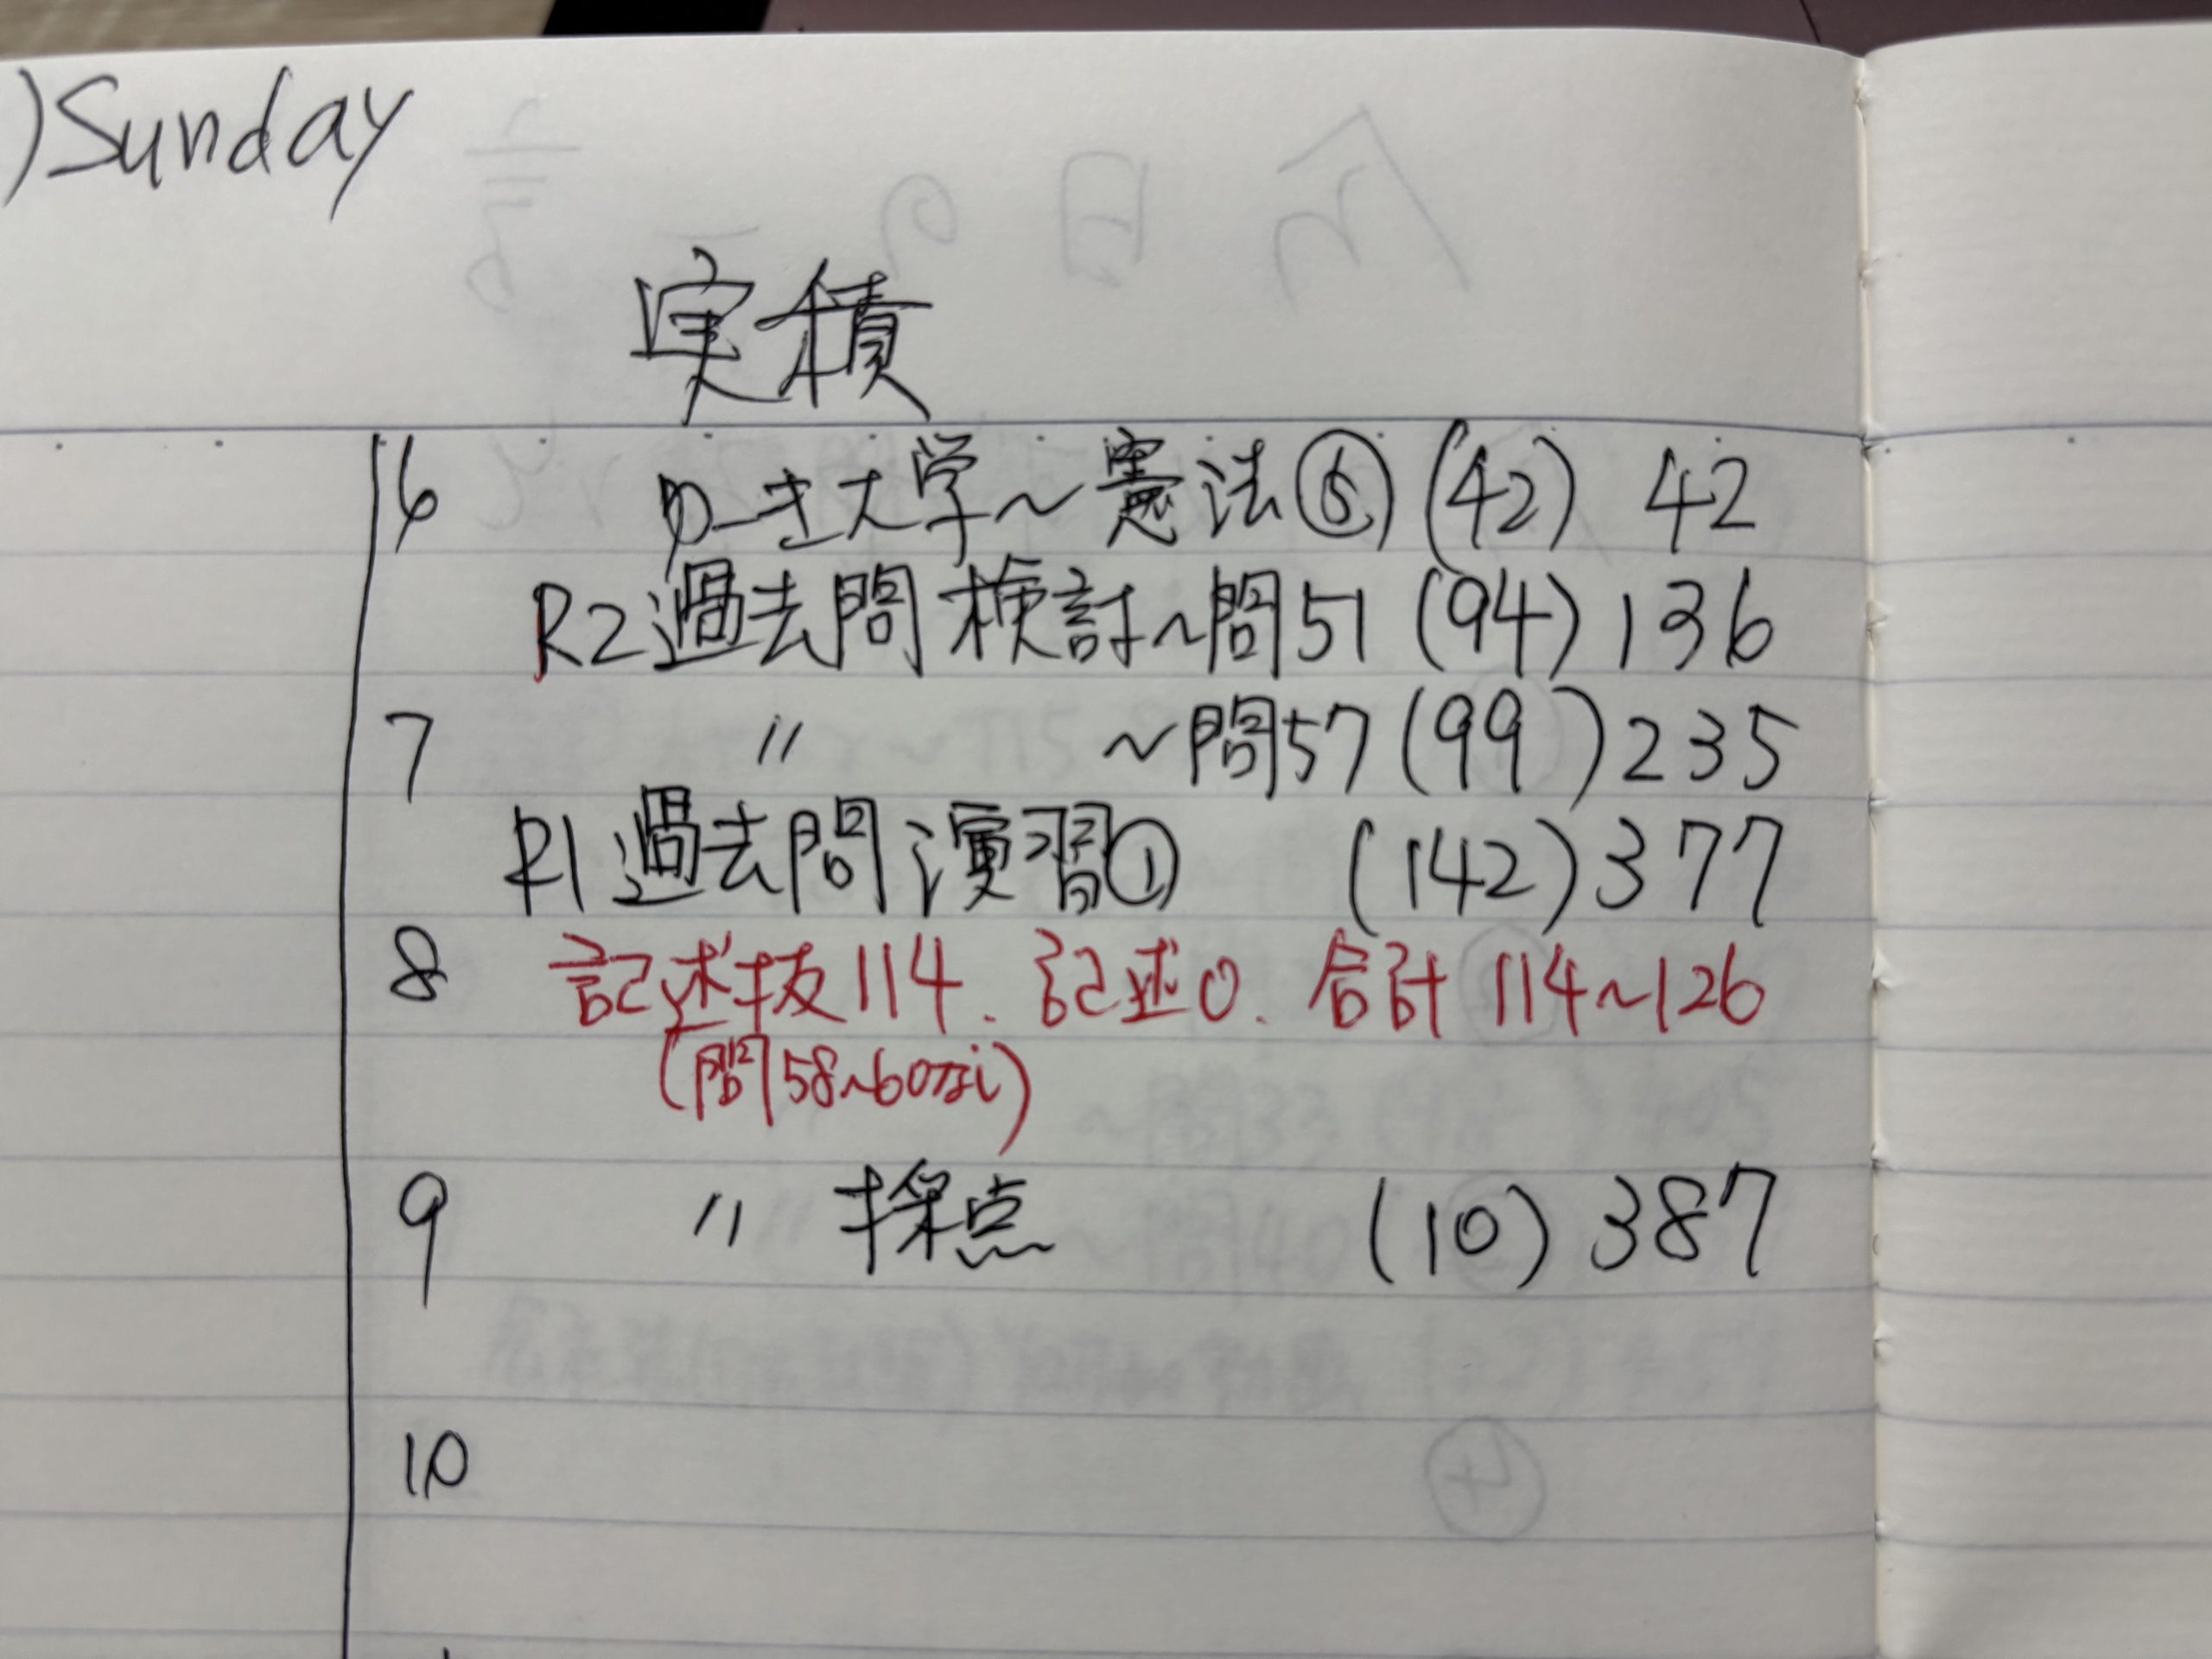 )Sunday
実積
6 ゆーき大学～憲法⑤ (42) 42
R2過去問検討～問51 (94) 136
7 〃 ～問57 (99) 235
R1過去問演習① (142) 377
8 記述抜114. 記述0. 合計 114～126
(問58～60なし)
9 〃 採点 (10) 387
10